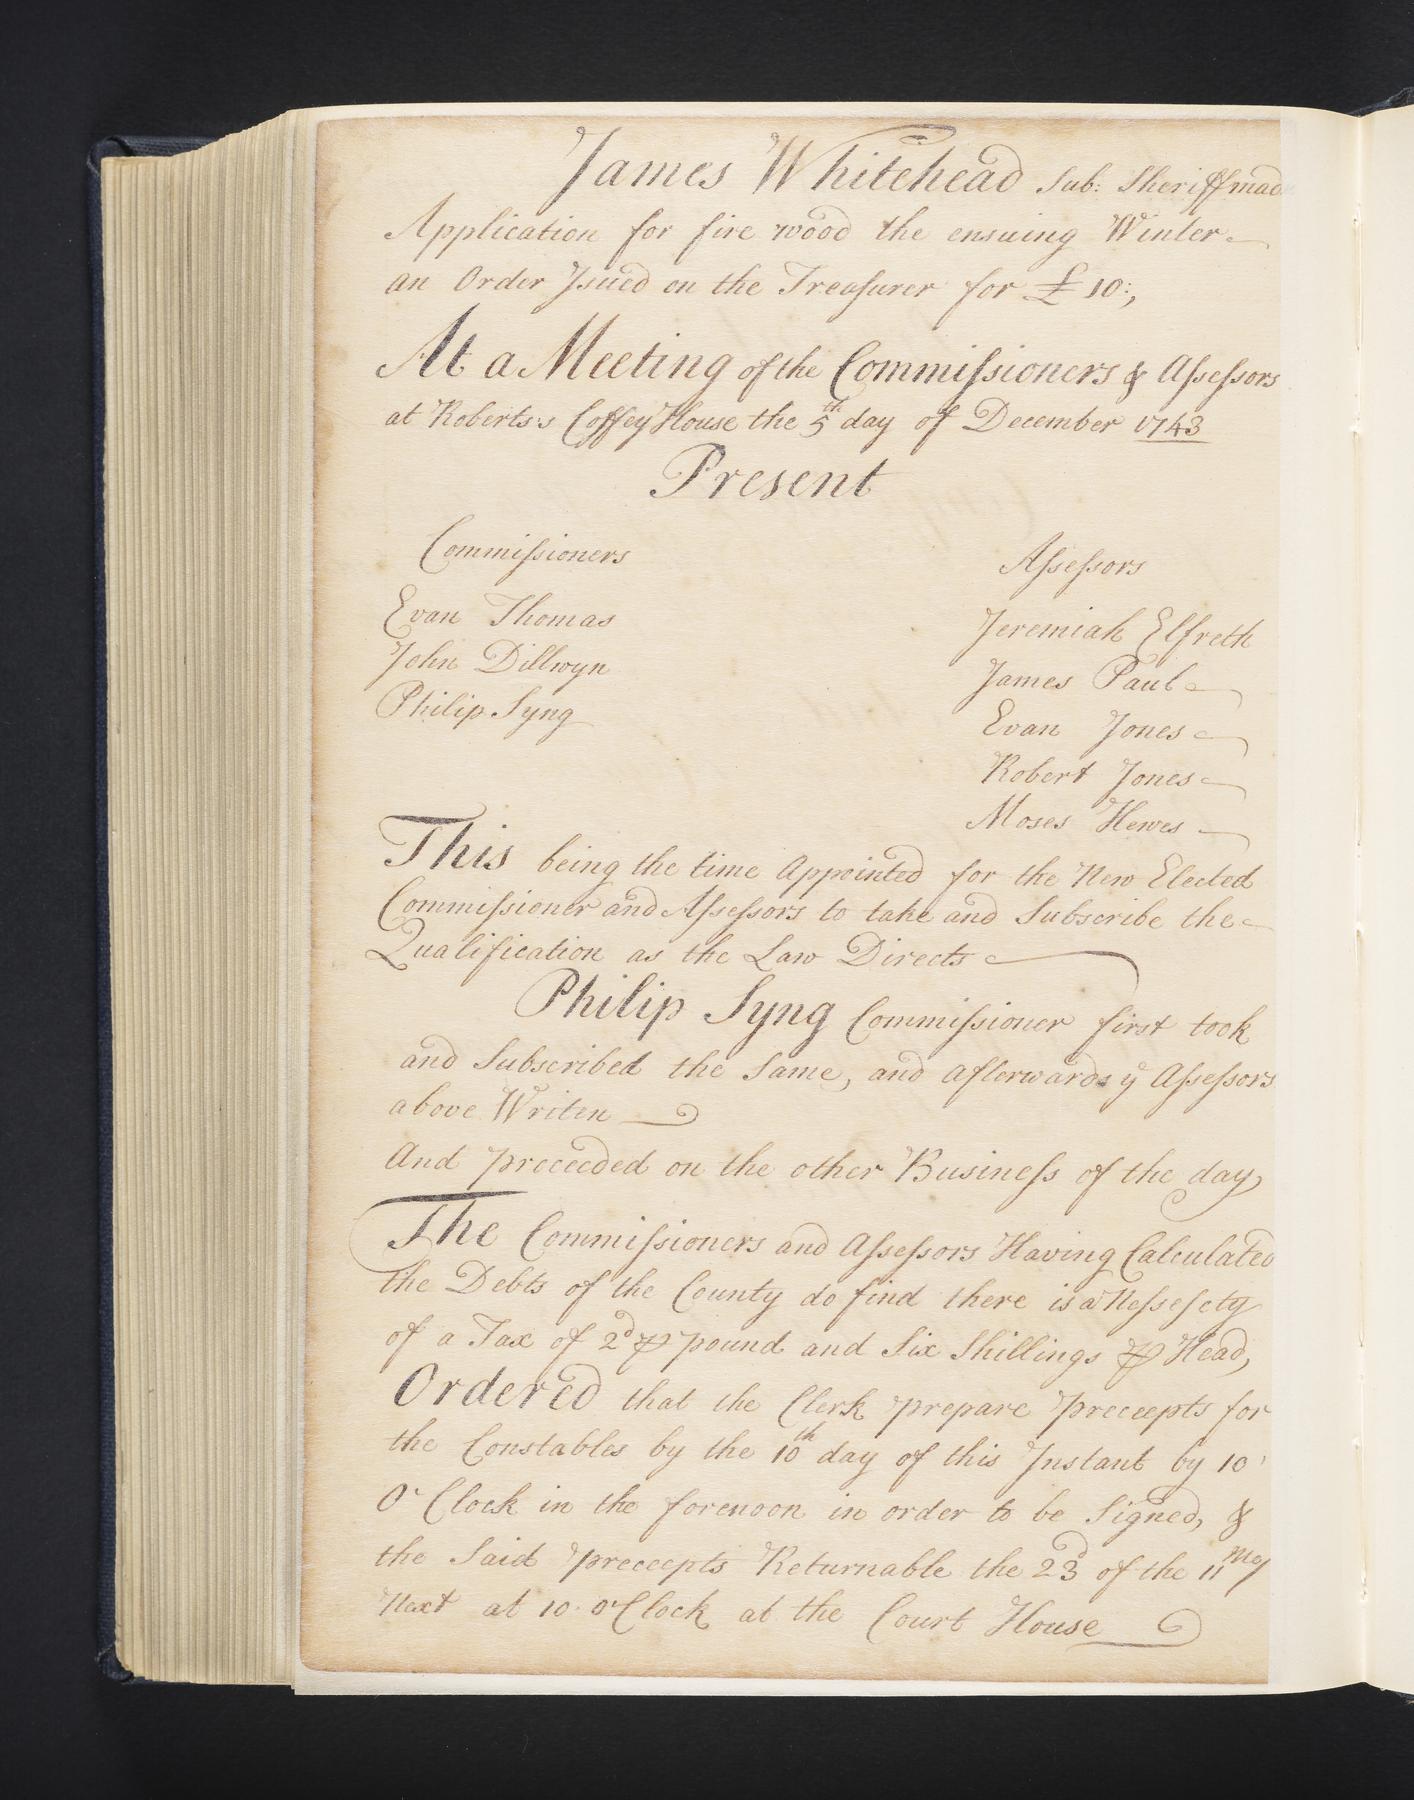 James Whitehead Sub: Sheriff made
Application for fire wood the ensuing Winter
an Order Isued on the Treasurer for £10:,
At a Meeting of the Commissioners & Assessors
at Roberts's Coffey House the 5th day of December 1743
Present
Commissioners
Evan Thomas
John Dillwyn
Philip Syng
Assessors
Jeremiah Elfreth
James Paul
Evan Jones
Robert Jones
Moses Hewes
This being the time Appointed for the New Elected
Commissioner and Assessors to take and Subscribe the
Qualification as the Law Directs
Philip Syng Commissioner first took
and Subscribed the Same, and afterwards ye Assessors
above Writen
And proceeded on the other Business of the day,
The Commissioners and Assessors Having Calculated
the Debts of the County do find there is a Nessesety
of a Tax of 2d ⅌ pound and Six Shillings ⅌ Head,
Ordered that the Clerk prepare preceepts for
the Constables by the 10th day of this Instant by 10
O'Clock in the forenoon in order to be Signed, &
the Said preceepts Returnable the 23d of the 11 Mo/
Next at 10 o'Clock at the Court House